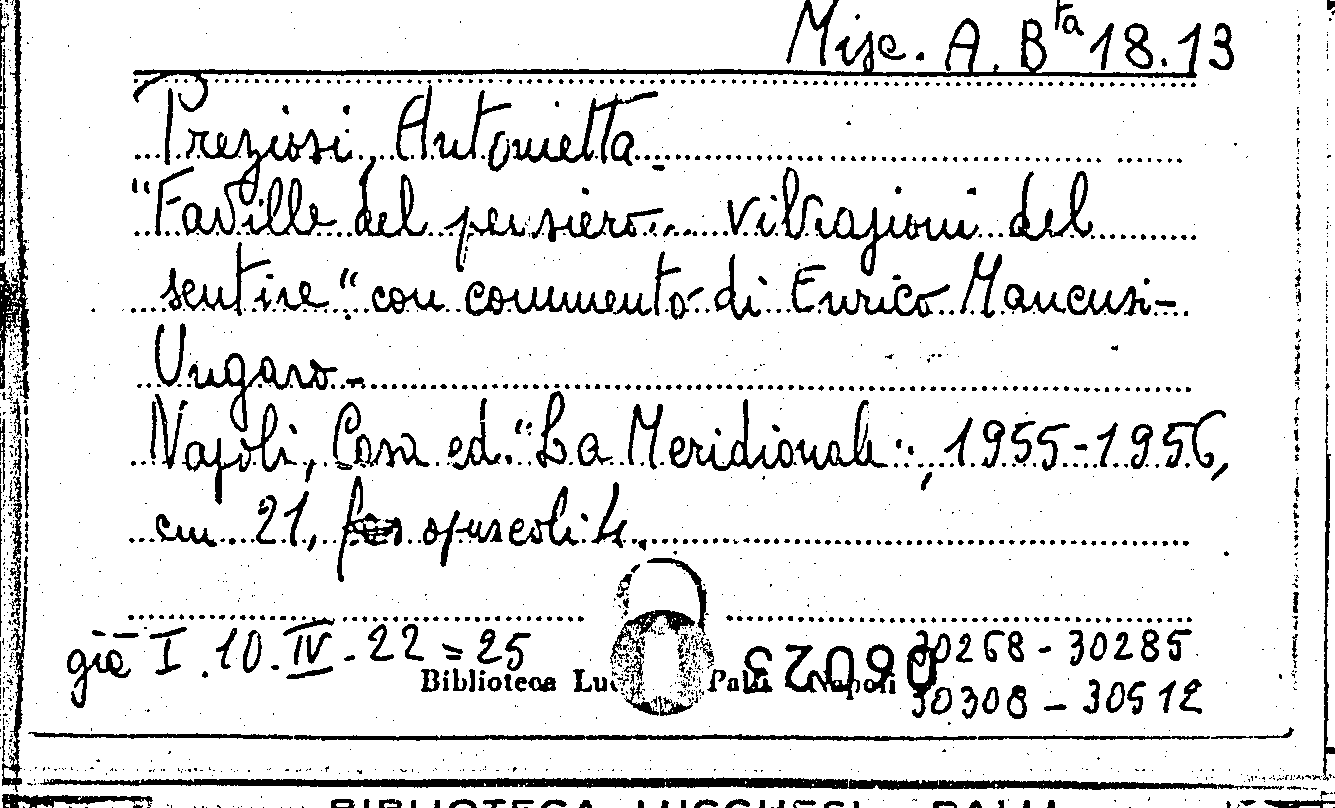 Misc. A. Bta 18.13
Preziosi, Antonietta
"Faville del pensiero... vibrazioni del
sentire" con commento di Enrico Mancusi-
Ungaro -
Napoli, Casa ed. "La Meridionale", 1955-1956,
cm. 21, opuscoli 4.
già I.10.IV.22=25
30268-30285
Biblioteca Napoli
06023
30308-30512
BIBLIOTECA LUCCHESI PALLI